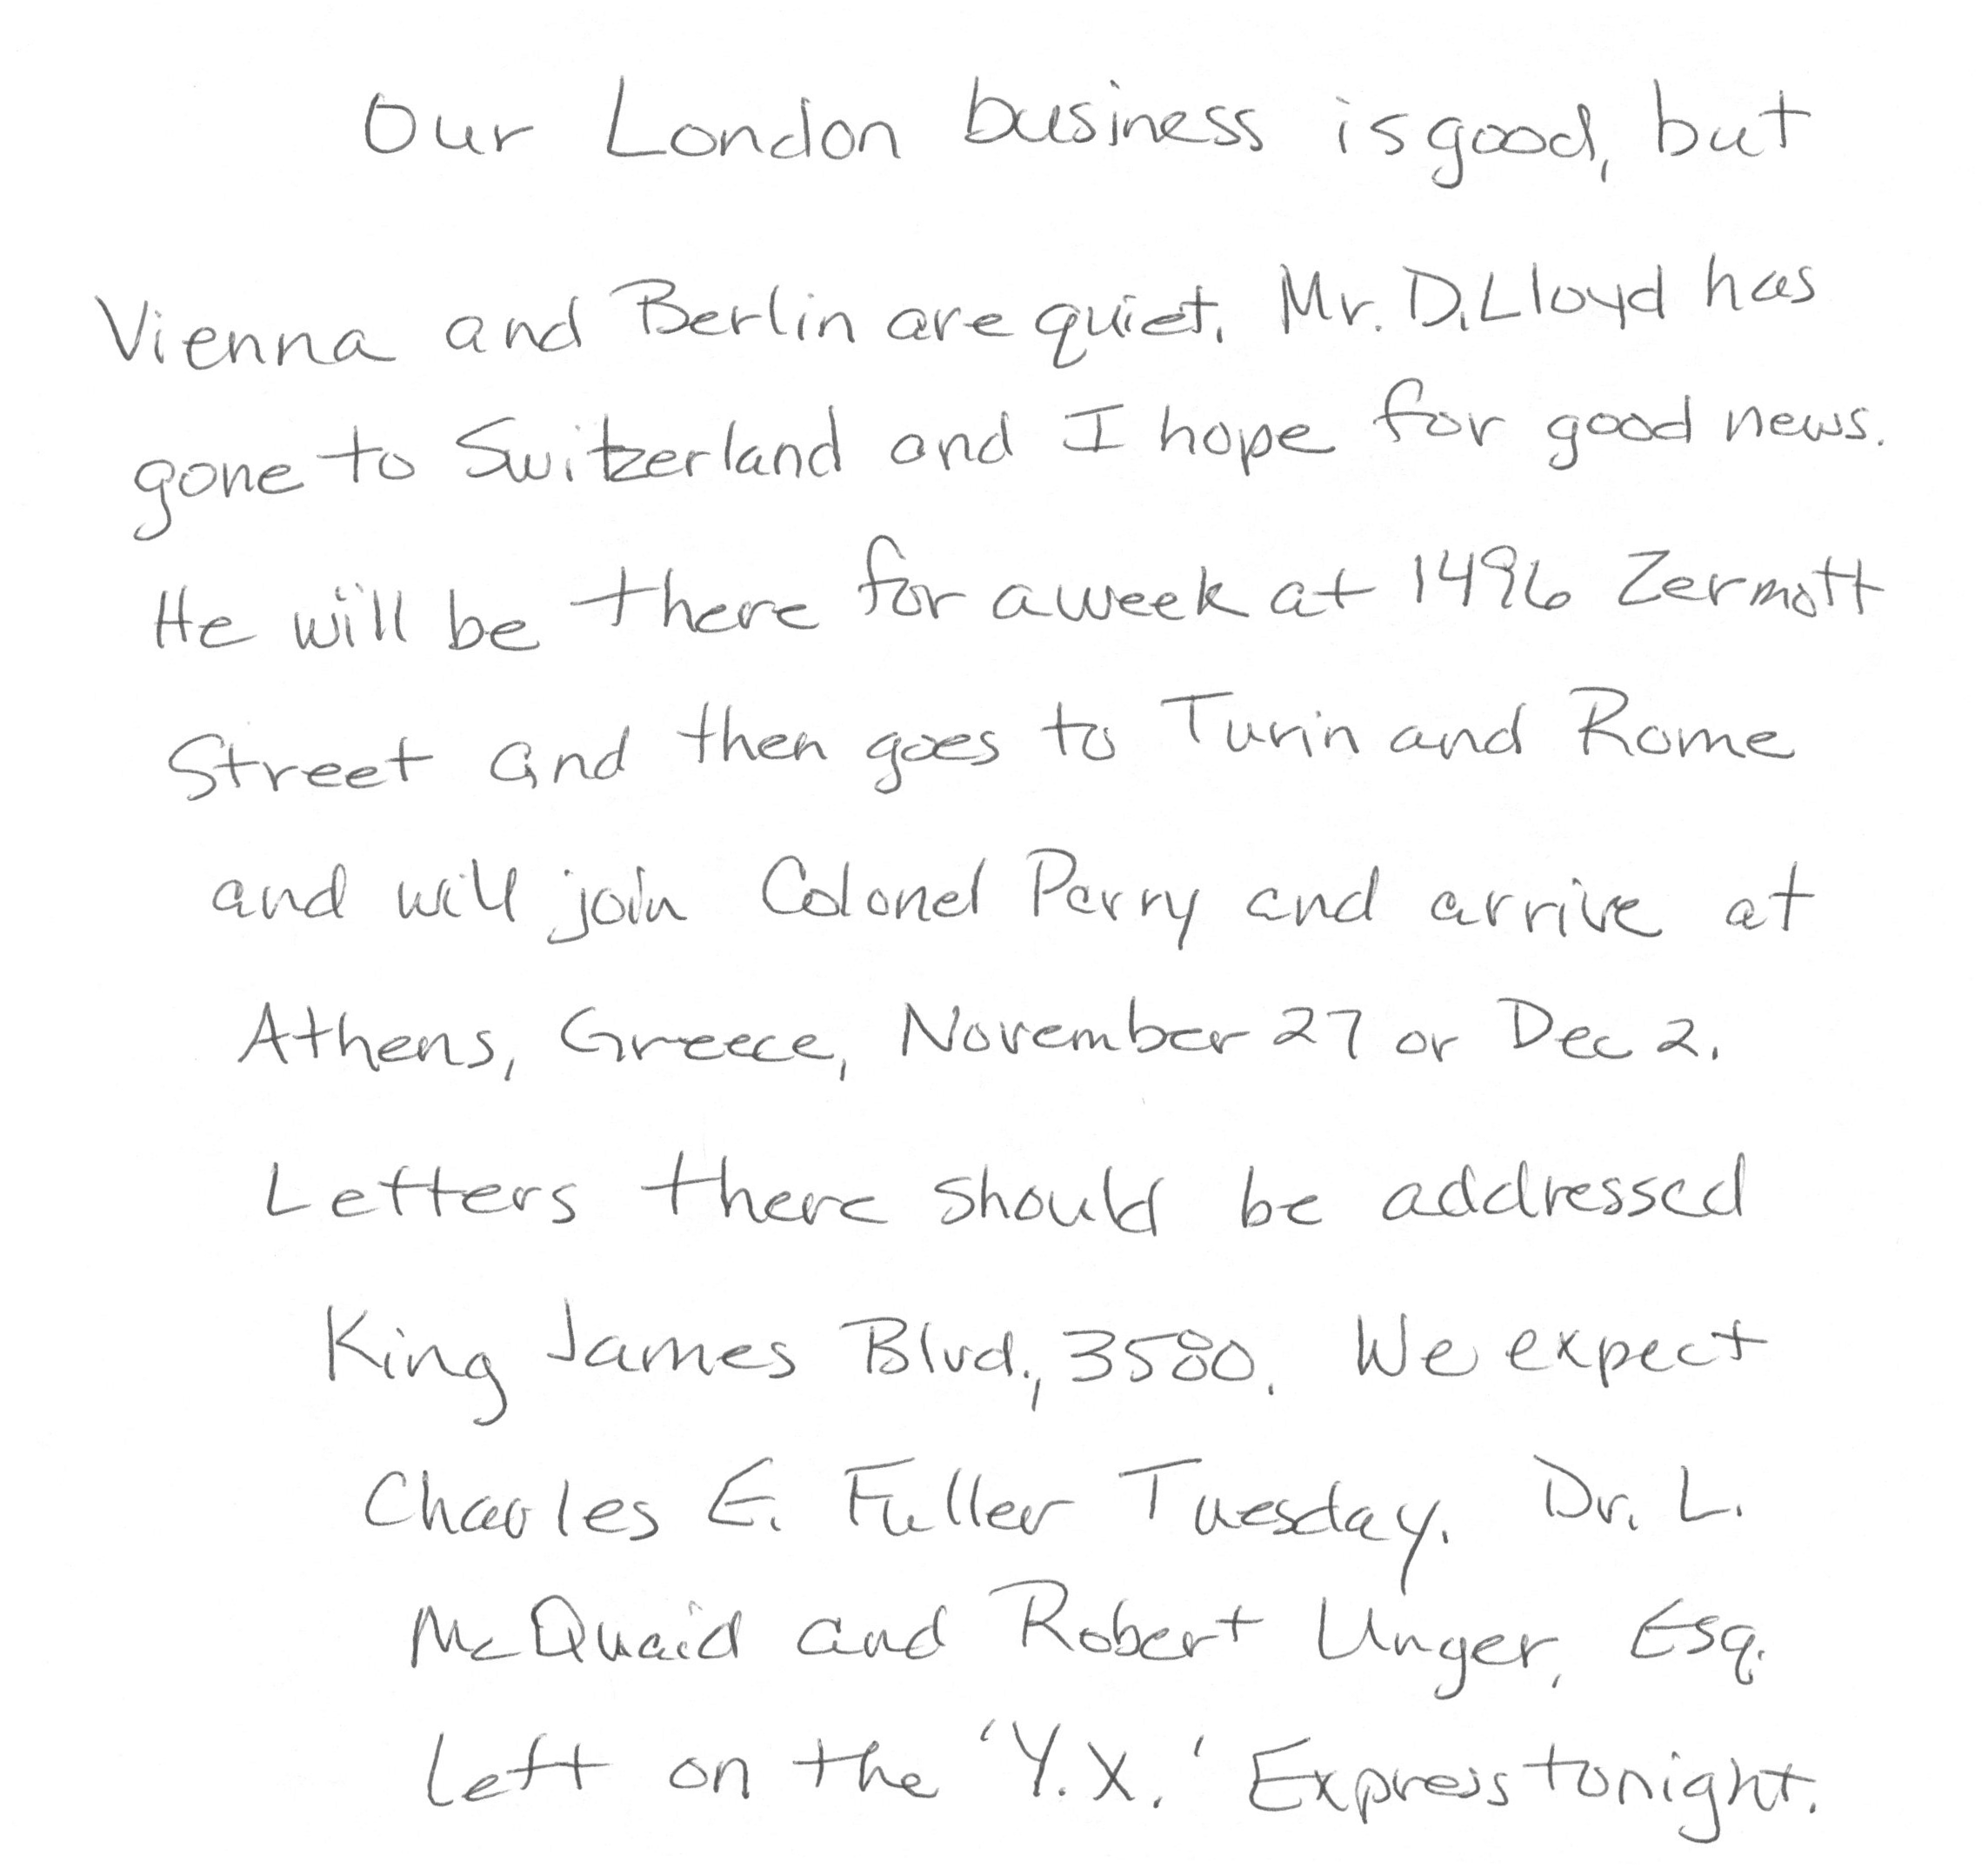 Our London business is good, but
Vienna and Berlin are quiet. Mr. D. Lloyd has
gone to Switzerland and I hope for good news.
He will be there for a week at 1496 Zermott
Street and then goes to Turin and Rome
and will join Colonel Perry and arrive at
Athens, Greece, November 27 or Dec 2.
Letters there should be addressed
King James Blvd., 3580. We expect
Charles E. Fuller Tuesday. Dr. L.
McQuaid and Robert Unger, Esq.
left on the 'Y.X.' Express tonight.